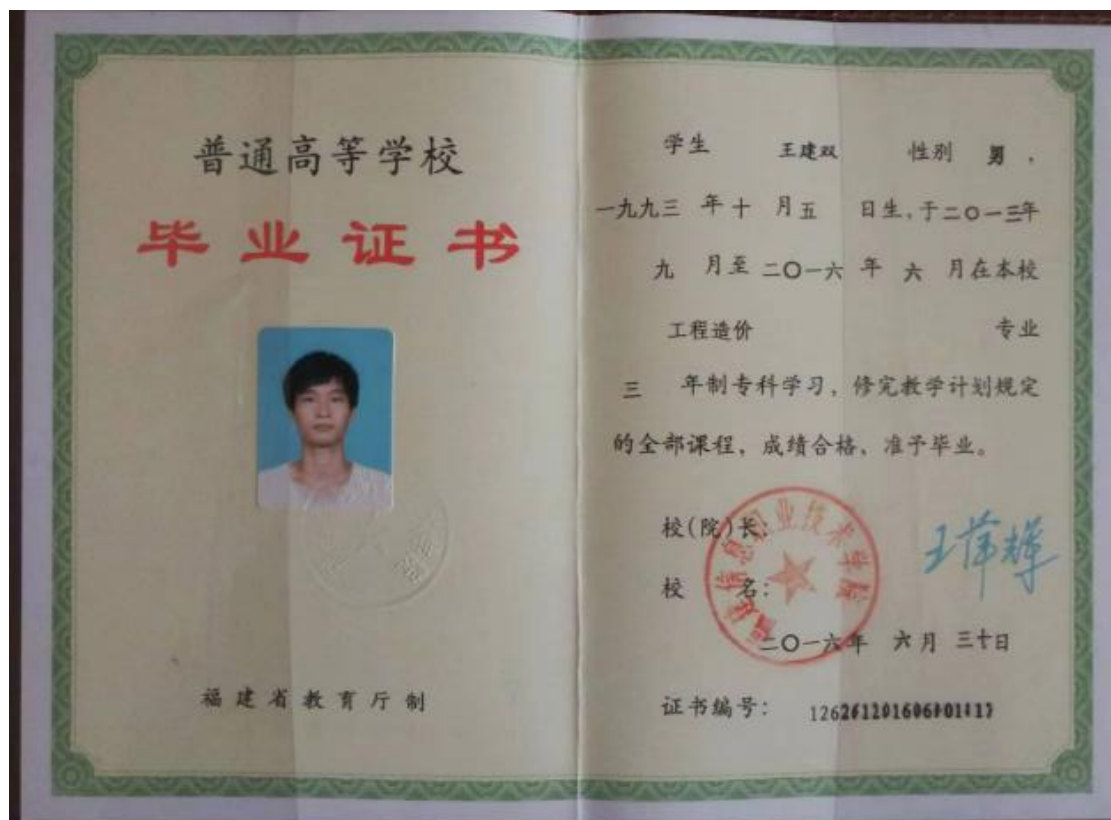 普通高等学校
毕业证书
福建省教育厅 制
学生 王建双 性别 男,
一九九三 年 十 月 五 日生,于二〇一三年
九 月至 二〇一六 年 六 月在本校
工程造价 专业
三 年制专科学习,修完教学计划规定
的全部课程,成绩合格,准予毕业。
校(院)长:
校 名:
信息职业技术学院
二〇一六年 六月 三十日
证书编号: